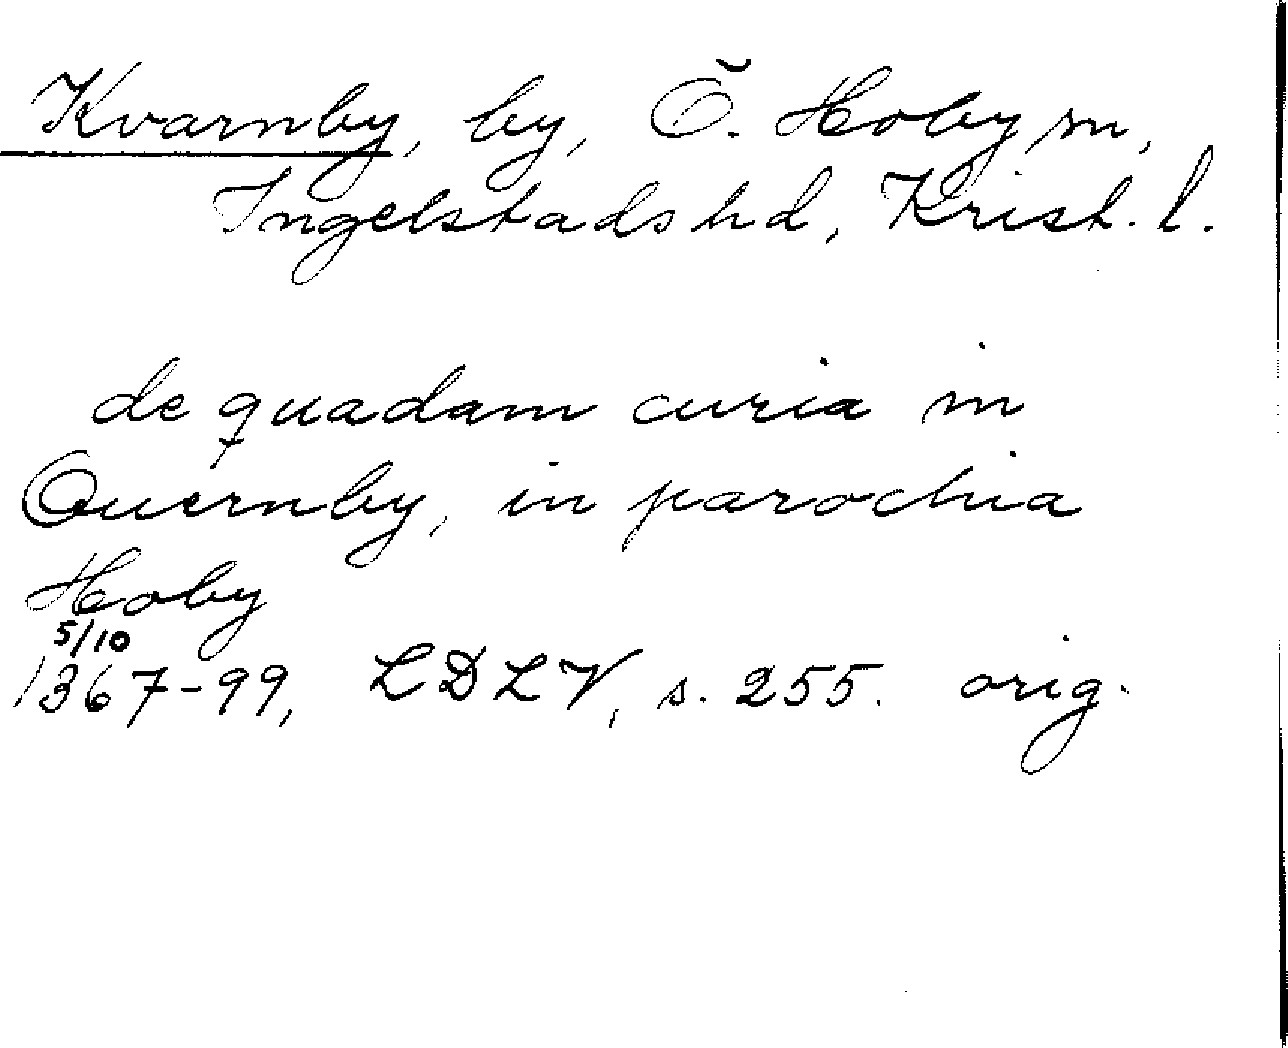 Kvarnby, by, Ö. Hoby sn,
Ingelstads hd, Krist. l.
de quadam curia in
Quernby, in parochia
Hoby
5/10
1367-99, LDLV, s. 255. orig.